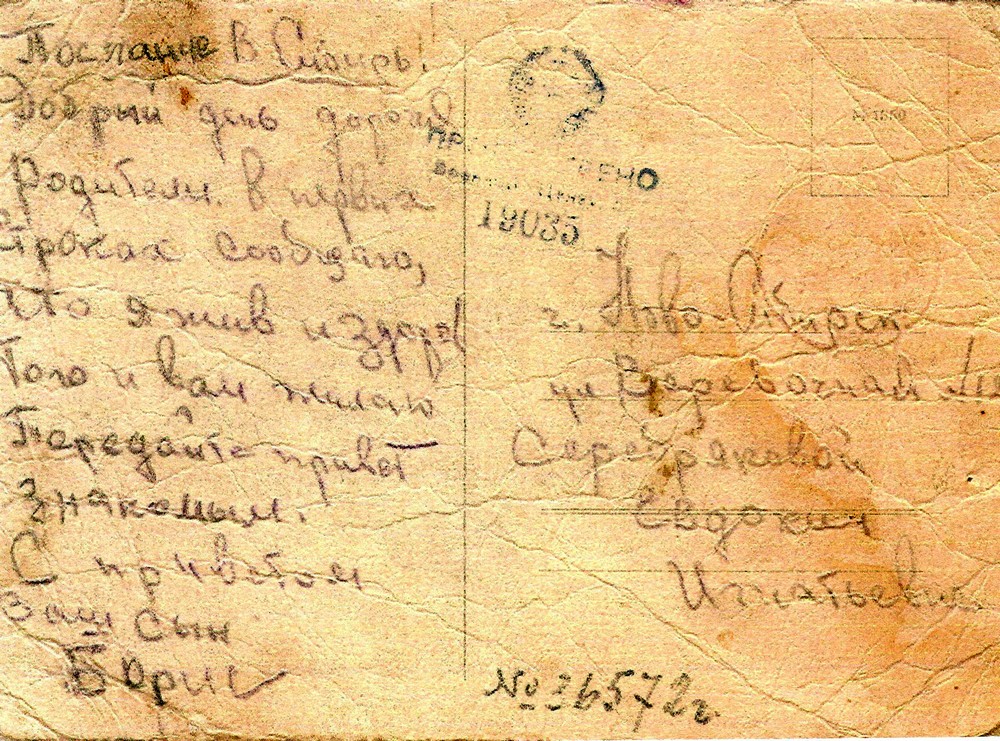 Послание в Сибирь!
Добрый день дорогие
Родители. В первых
строках сообщаю,
что я жив и здоров
Того и вам желаю
Передайте привет
Знакомым.
С приветом
Ваш сын
Борис
19035
г. Ново Сибирск
ул Веревочная
Серебряковой
Евдокии
Игнатьевне
№ 36572г